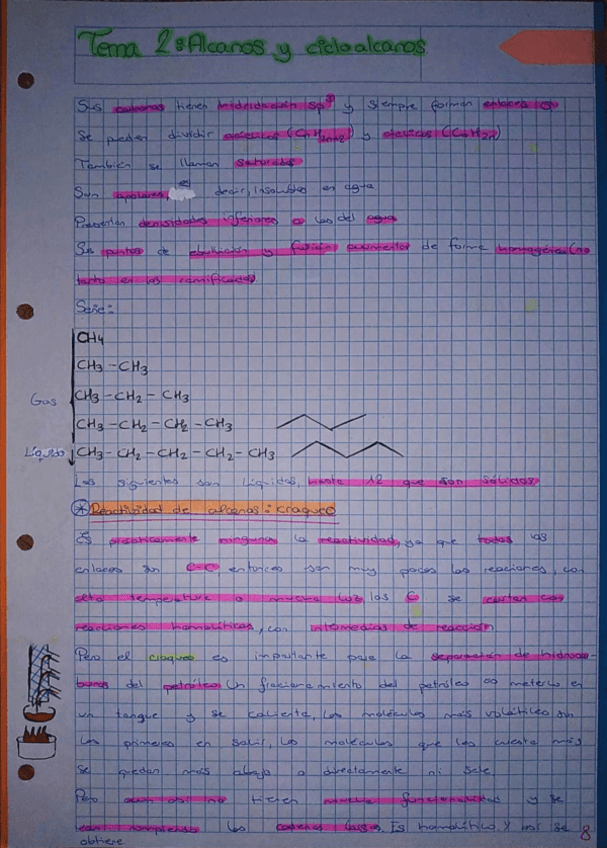 Tema 2: Alcanos y cicloalcanos
Sus carbonos tienen hibridación sp³ y siempre forman enlaces σ
Se pueden dividir acíclicos (CnH2n+2) y cíclicos (CnH2n)
También se llaman saturados
Son apolares, es decir, insolubles en agua
Presentan densidades inferiores a las del agua
Sus puntos de ebullición y fusión aumentan de forma homogénea (no
tanto en los ramificados)
Serie:
CH4
CH3-CH3
Gas CH3-CH2-CH3
CH3-CH2-CH2-CH3
Líquido CH3-CH2-CH2-CH2-CH3
Los siguientes son líquidos, hasta 12 que son sólidos
* Reactividad de alcanos: craqueo
Es prácticamente ninguna la reactividad, ya que todos los
enlaces son C-C, entonces son muy pocas las reacciones, con
alta temperatura o mucha luz los C se cortan con
reacciones homolíticas, con intermedios de reacción
Pero el craqueo es importante para la separación de hidrocar-
buros del petróleo. Un fraccionamiento del petróleo es meterlo en
un tanque y se calienta, las moléculas más volátiles son
las primeras en salir, las moléculas que les cuesta más
se quedan más abajo o directamente ni sale.
Pero aun así no tienen mucha funcionalidad y se
van rompiendo las cadenas largas. Es homolítico. Y así se
obtiene
8